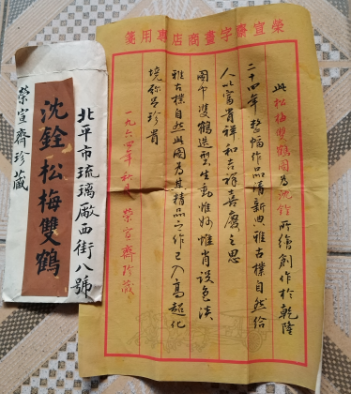 北平市琉璃廠西街八號
沈銓松梅雙鶴
榮宣齋珍藏
榮宣齋字畫商店專用箋
此松梅雙鶴圖為沈銓所繪創作於乾隆
二十四年整幅作品清新典雅古樸自然给
人以富貴祥和吉祥喜慶之思
圖中雙鶴造型生動惟妙惟肖设色淡
雅古樸自然此圖为其精品之作已入高超化
境弥足珍贵
一九六四年秋月 榮宣齋珍藏